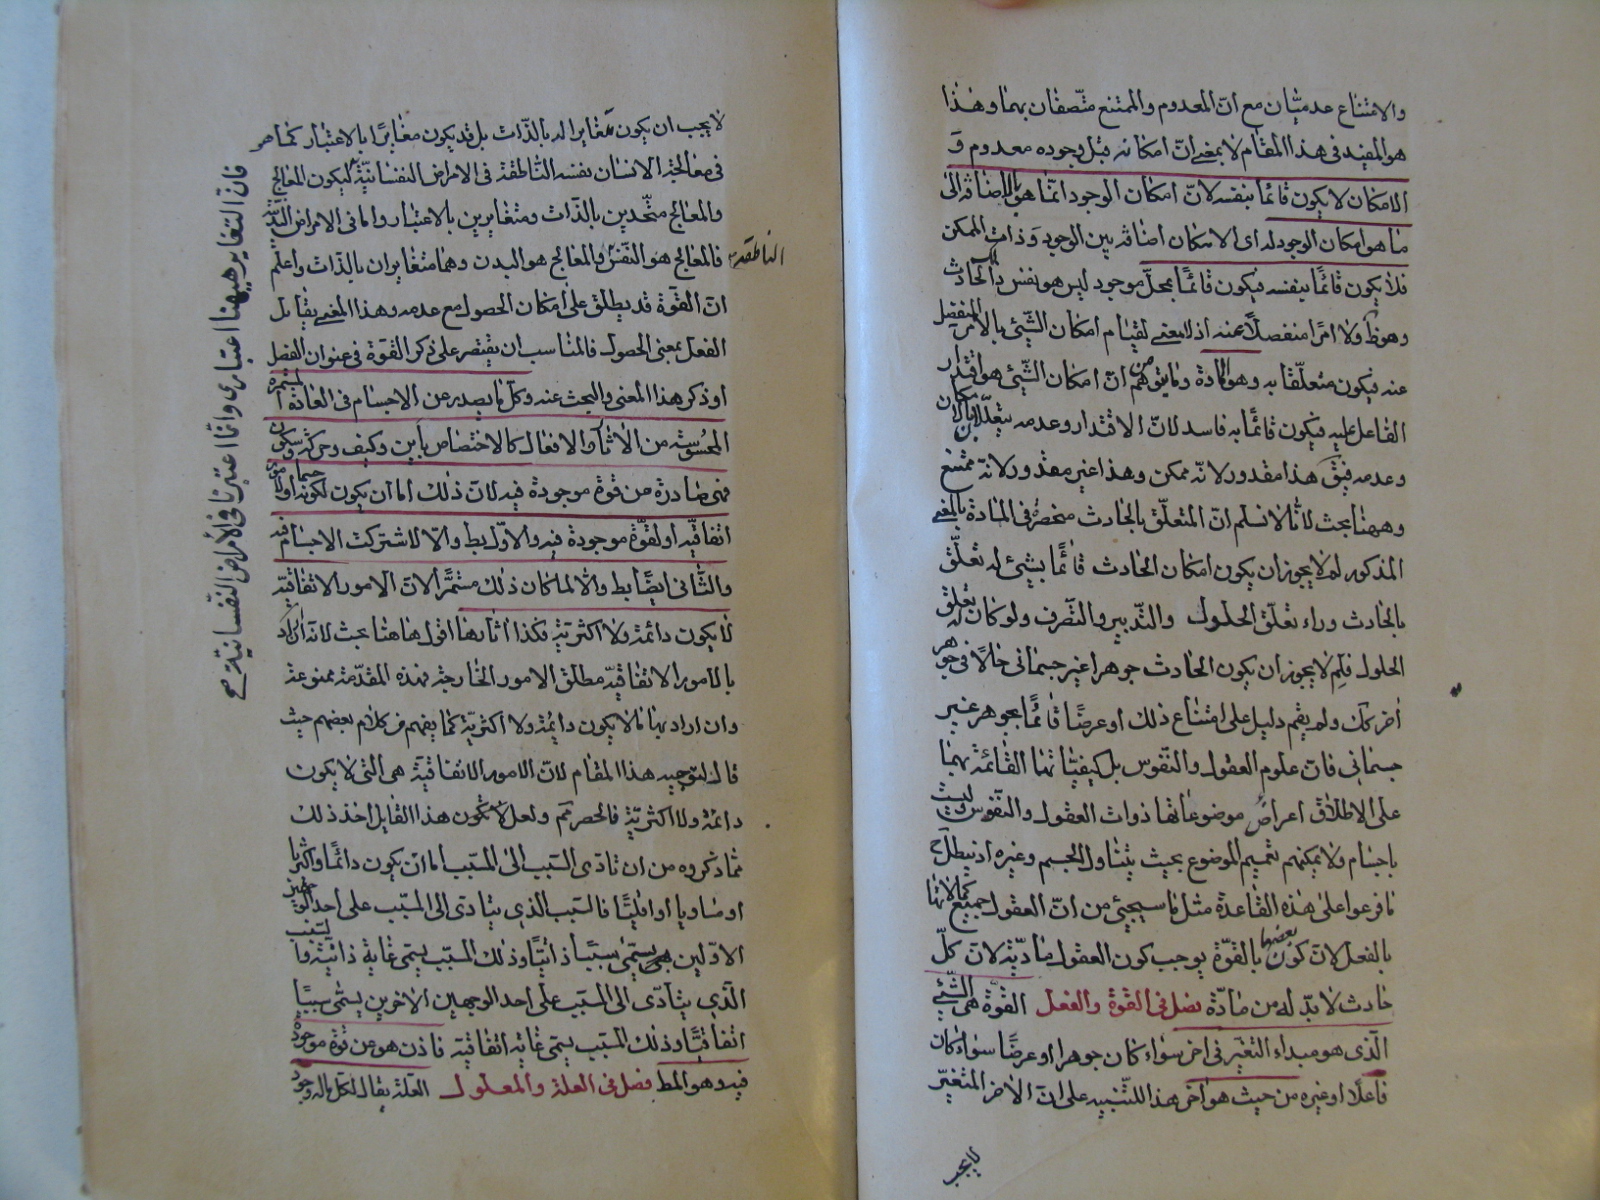 والامتناع عدميّان مع انّ المعدوم والممتنع متّصفان بهما وهذا
هو المفيد فى هذا المقام لا بمعنى انّ امكانه قبل وجوده معدوم و
الامكان لا يكون قائما بنفسه لانّ امكان الوجود انّما هو بالاضافة الى
ما هو امكان الوجود له اى الامكان اضافة بين الوجود وذات الممكن
فلا يكون قائمًا بنفسه فيكون قائمًا بمحلّ موجود ليس هو نفس ذلك الحادث
وهو ظ ولا امرًا منفصلًا عنه اذ لا معنى لقيام امكان الشّيئ بالامر المنفصل
عنه فيكون متعلّقا به وهو المادة وما يتوهم من انّ امكان الشّيئ هو اقتدار
الفاعل عليه فيكون قائمًا به فاسد لانّ الاقتدار وعدمه يتعلّلان بالامكان
وعدمه فيقٓ هذا مقدور لانّه ممكن وهذا غير مقدور لانّه ممتنع
وههنا بحث لانّا لا نسلم انّ المتعلّق بالحادث منحصرة فى المادة بالمعنى
المذكور لم لا يجوز ان يكون امكان الحادث قائمًا بشيئ له تعلّق
بالحادث وراء تعلّق الحلول والتّدبير والتّصرف ولو كان له تعلّق
الحلول فلم لا يجوز ان يكون الحادث جوهرا غير جسمانى حالّا فى جوهر
اٰخر كك ولم يقم دليل على امتناع ذلك او عرضًا قائمًا بجوهر غير
جسمانى فانّ علوم العقول والنّفوس بل كيفيّاتها القائمة بهما
على الاطلاق اعراض موضوعاتها ذوات العقول والنّفوس وليست
باجسام ولا يمكنهم تعميم الموضوع بحيث يتناول الجسم وغيره اذ يبطل ح
ما فرعوا على هذه القاعدة مثل ما سيجيئ من انّ العقول جميع كمالاتها
بالفعل لانّ كون بعضها بالقوّة يوجب كون العقول ماديّة لانّ كلّ
حادث لا بدّ له من مادّة فصل فى القوة والفعل القوّة هى الشّيئ
الّذى هو مبداء التغيّر فى اخر سواء كان جوهرا او عرضًا سواء كان
فاعلًا او غيره من حيث هو اخر هذا للتّنبيه على انّ الاٰخر المتغيّر
لا يجب
لا يجب ان يكون مغايرا له بالذّات بل قد يكون مغايرًا بالاعتبار كما هو
فى معالجة الانسان نفسه النّاطقة فى الامراض النفسانيّة ليكون المعالج
والمعالج متّحدين بالذّات ومتغايرين بالاعتبار واما فى الامراض البدنيّة
فالمعالج هو النّفس والمعالج هو البدن وهما متغايران بالذّات واعلم
الناطقة
انّ القوّة قد يطلق على امكان الحصول مع عدمه وهذا المعنى يقابل
الفعل بمعنى الحصول فالمناسب ان يقتصر على ذكر القوّة فى عنوان الفصل
او ذكر هذا المعنى والبحث عنه وكلّ ما يصدر عن الاجسام فى العادة المستمرة
المحسوسة من الاثار والافعال كالاختصاص باين وكيف وحركة وسكون
فهى صادرة من قوّة موجودة فيه لانّ ذلك اما ان يكون لكونه جسما او لامور
اتفاقيّه او لقوّة موجودة فيه والاوّل بط والّا لاشتركت الاجسام فيه
والثّانى ايضًا بط والّا لما كان ذلك مستمرًّا لانّ الامور الاتفاقيّة
لا يكون دائمة ولا اكثريّة هكذا قالوا اقول هاهنا بحث لانّه ان اراد
بالامور الاتفاقيّه مطلق الامور الخارجيّة فهذه المقدّمة ممنوعة
وان اراد بها ما لا يكون دائمة ولا اكثريّة كما يفهم من كلام بعضهم حيث
قال لتوجيه هذا المقام لانّ الامور الاتفاقيّة هى التى لا يكون
دائمة ولا اكثريّة فالحصر مم ولعل هذا القايل اخذ ذلك
مما ذكروه من ان تادّى السّبب الى المسبّب اما ان يكون دائمًا او اكثريا
او مساويا او اقليًّا فالسّبب الذى يتادى الى المسبّب على احد الوجهين
الاوّلين يسمّى سببًا ذاتيًّا وذلك المسبّب يسمّى غاية ذاتيّة والسّبب
الّذى يتادّى الى المسبّب على احد الوجهين الاخرين يسمّى سببًا
اتفاقيًّا وذلك المسبّب يسمّى غاية اتفاقيّة فاذن هو من قوّة موجودة
فيه وهو المط فصل فى العلة والمعلول العلّة يقال لكل ماله وجود
فانّ التغاير هيهنا اعتبارى وانّما اعتبرنا فى الامراض النّفسانية